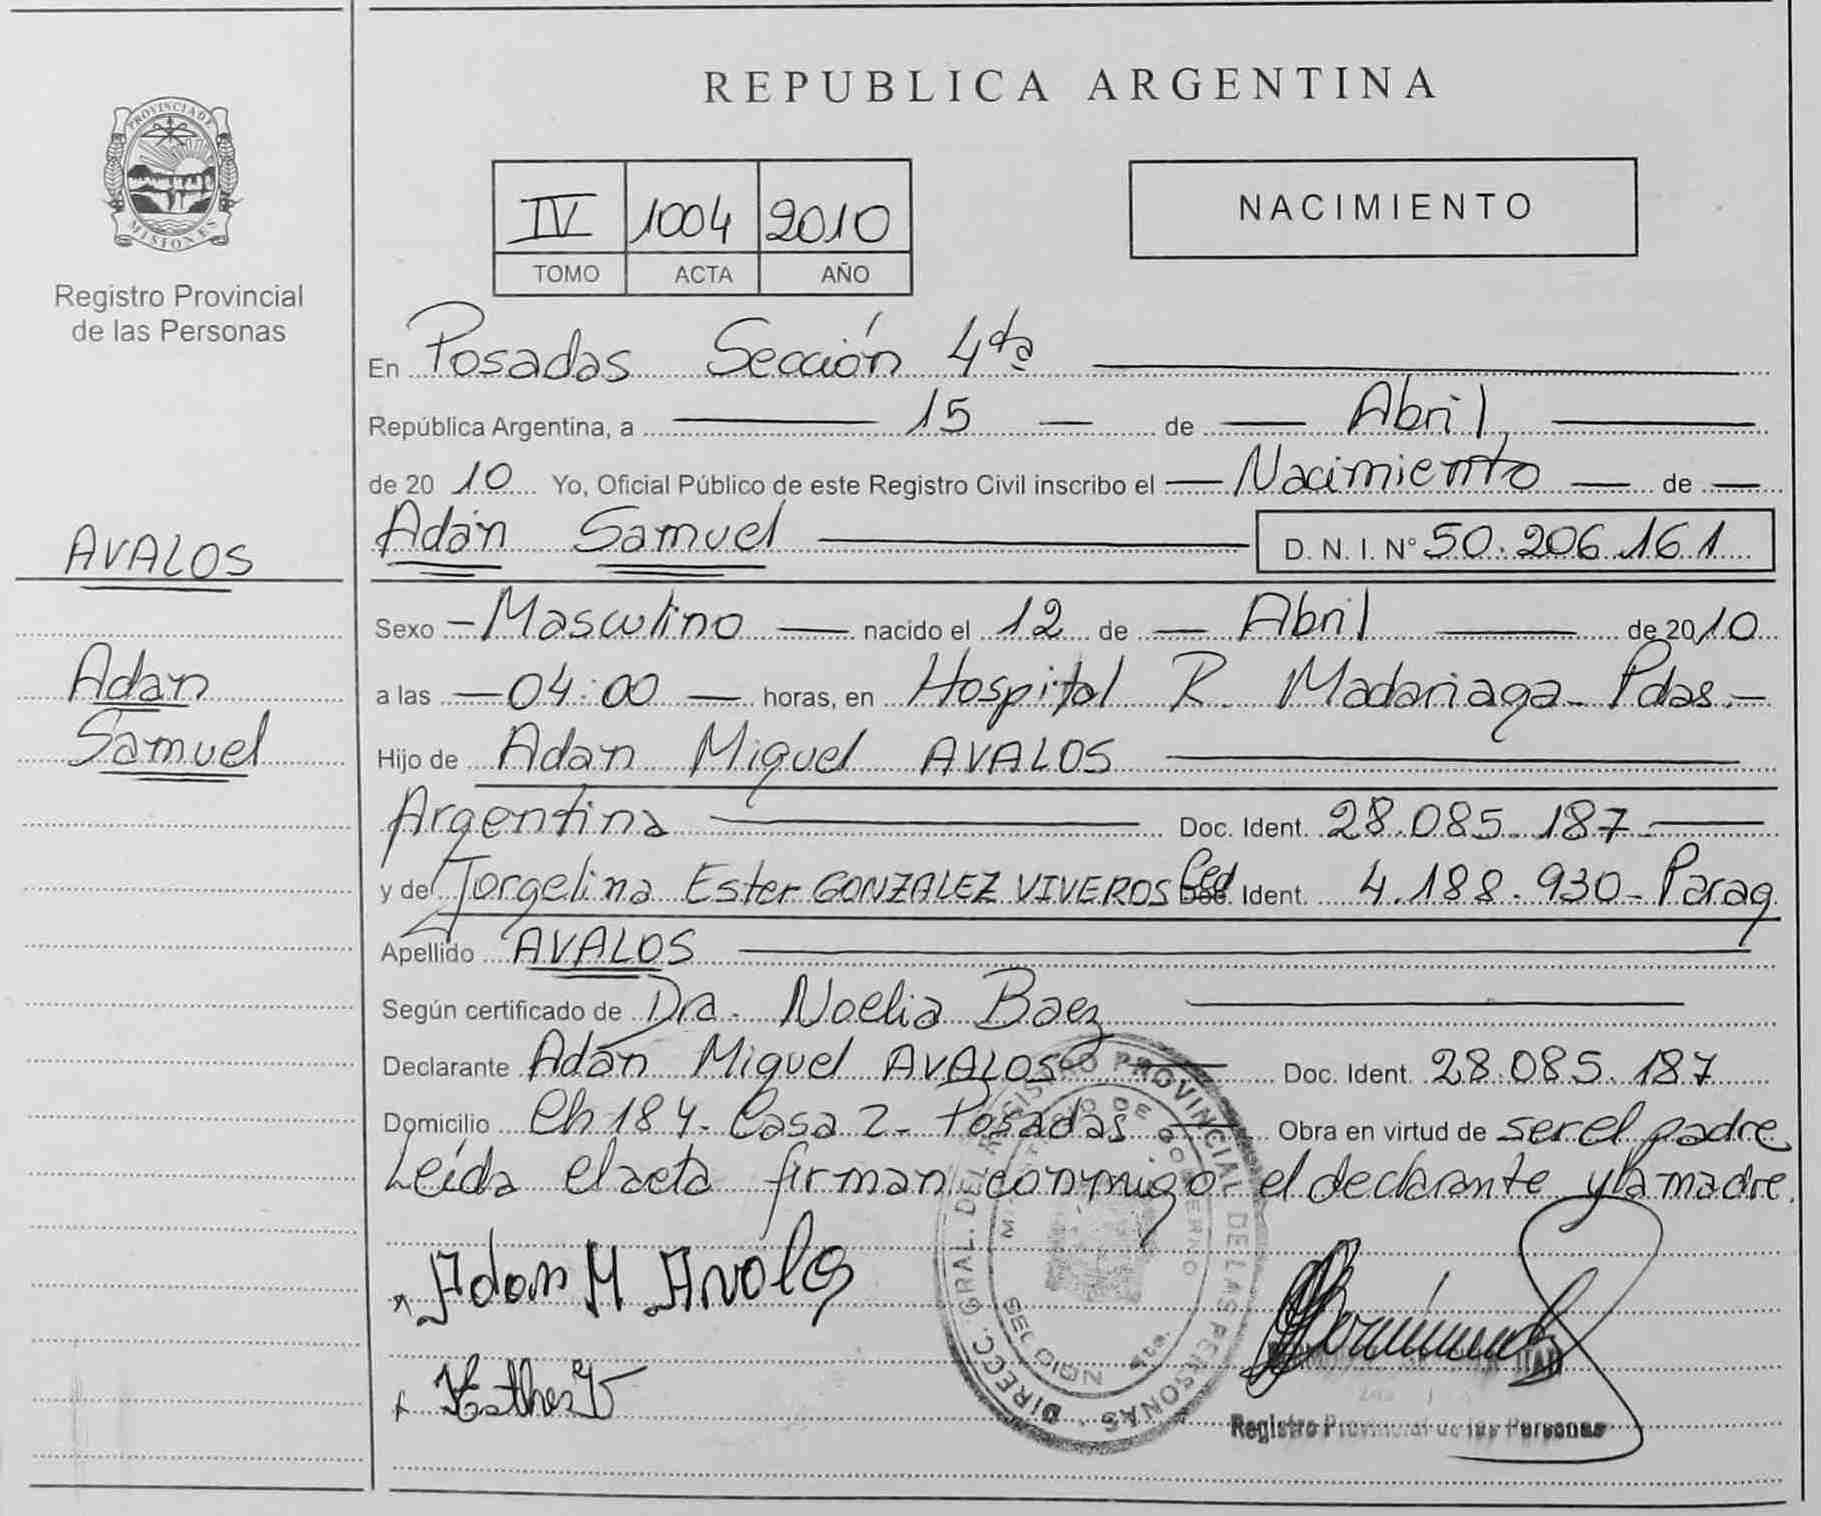 REPUBLICA ARGENTINA
PROVINCIA DE
MISIONES
Registro Provincial
de las Personas
IV 1004 2010
TOMO ACTA AÑO
NACIMIENTO
En Posadas Sección 4ta
República Argentina, a 15 de Abril,
de 20 10 Yo, Oficial Público de este Registro Civil inscribo el Nacimiento de
Adán Samuel D. N. I. N° 50.206.161
AVALOS
Adan
Samuel
Sexo Masculino nacido el 12 de Abril de 20 10
a las 04:00 horas, en Hospital R. Madariaga - Pdas.-
Hijo de Adan Miguel AVALOS
Argentina Doc. Ident. 28.085.187
y de Jorgelina Ester GONZALEZ VIVEROS Ced Ident. 4.188.930 - Parag
Apellido AVALOS
Según certificado de Dra. Noelia Baez
Declarante Adán Miguel AVALOS Doc. Ident. 28.085.187
Domicilio Ch 184 - Casa 2 - Posadas Obra en virtud de ser el padre
Leída el acta firman conmigo el declarante y la madre.
Adan M Avalos
Esther V
DIRECC. GRAL. DEL REGISTRO PROVINCIAL DE LAS PERSONAS
DE GOBIERNO
Registro Provincial de las Personas